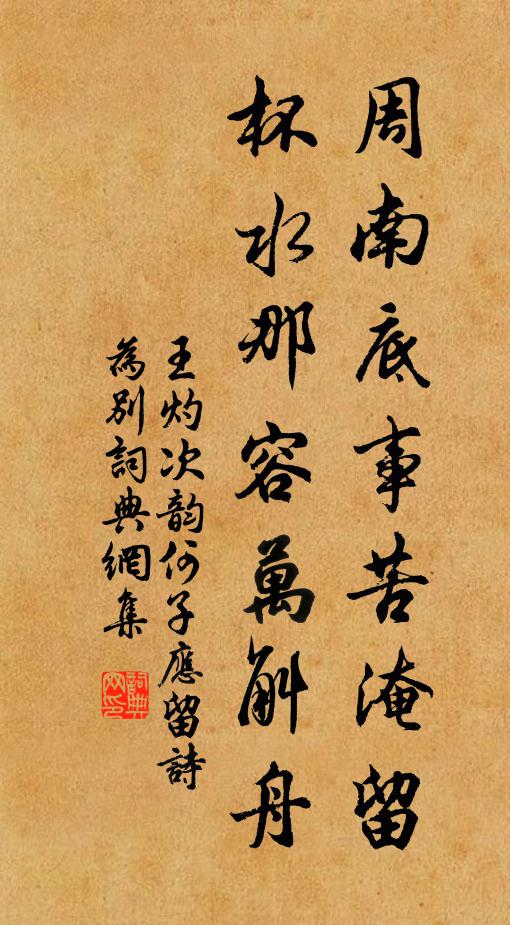 周南底事苦淹留
杯水那容萬斛舟
王灼次韵何子應留詩
為別詞典網集
詞典网印